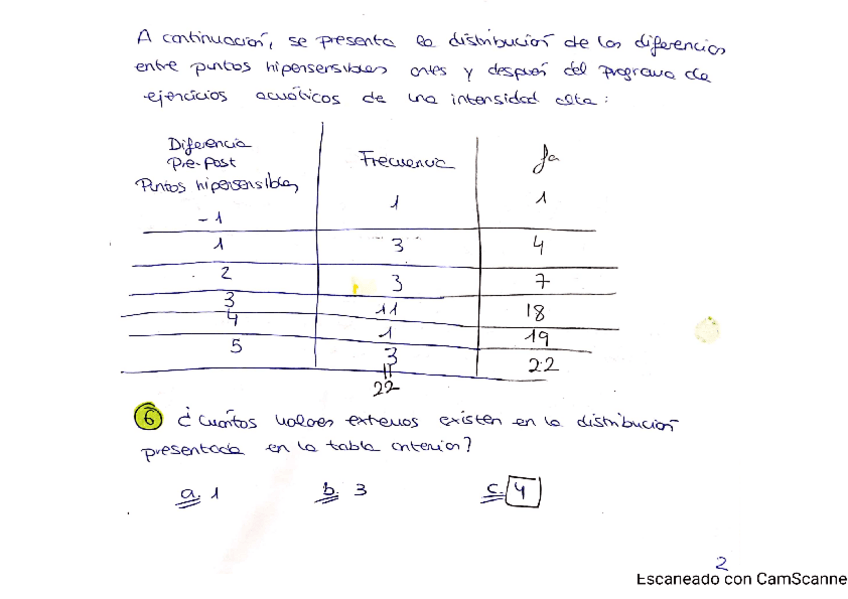 A continuación, se presenta la distribución de las diferencias
entre puntos hipersensibles antes y después del programa de
ejercicios acuáticos de una intensidad alta:
Diferencia
Pre-Post
Puntos hipersensibles
Frecuencia
fa
-1 1 1
1 3 4
2 3 7
3 11 18
4 1 19
5 3 22
22
6 ¿Cuántos valores extremos existen en la distribución
presentada en la tabla anterior?
a. 1 b. 3 c. 4
2
Escaneado con CamScanne